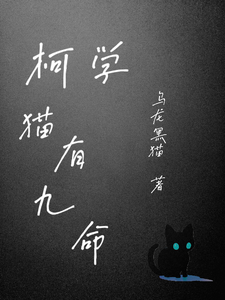 柯学
猫有
九命
乌龙黑猫 著